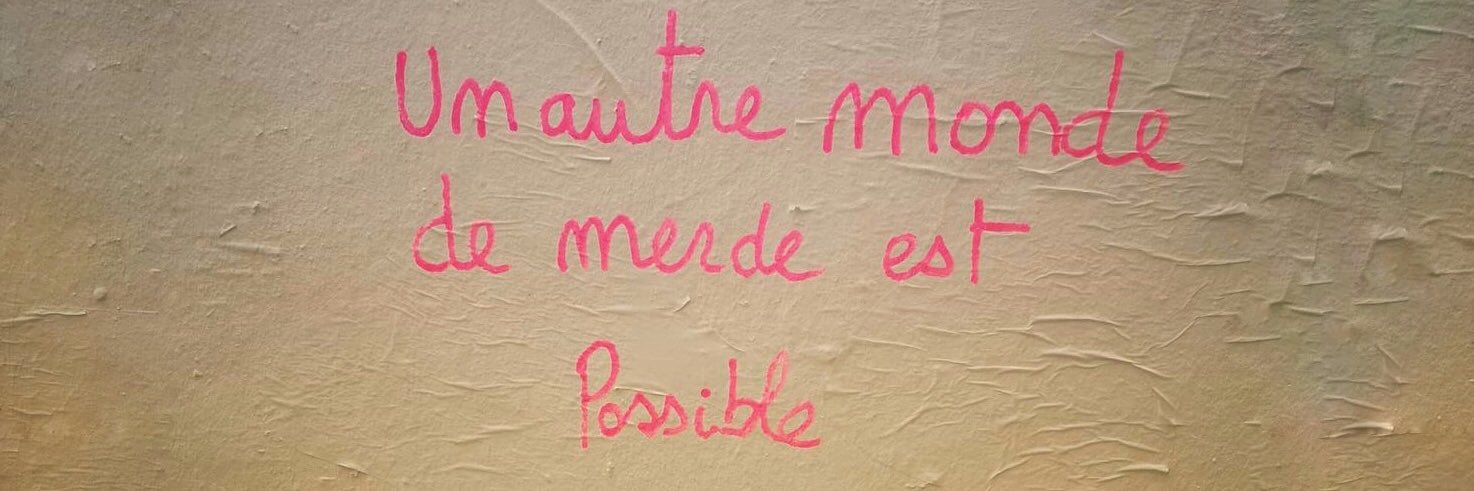 Un autre monde
de merde est
Possible